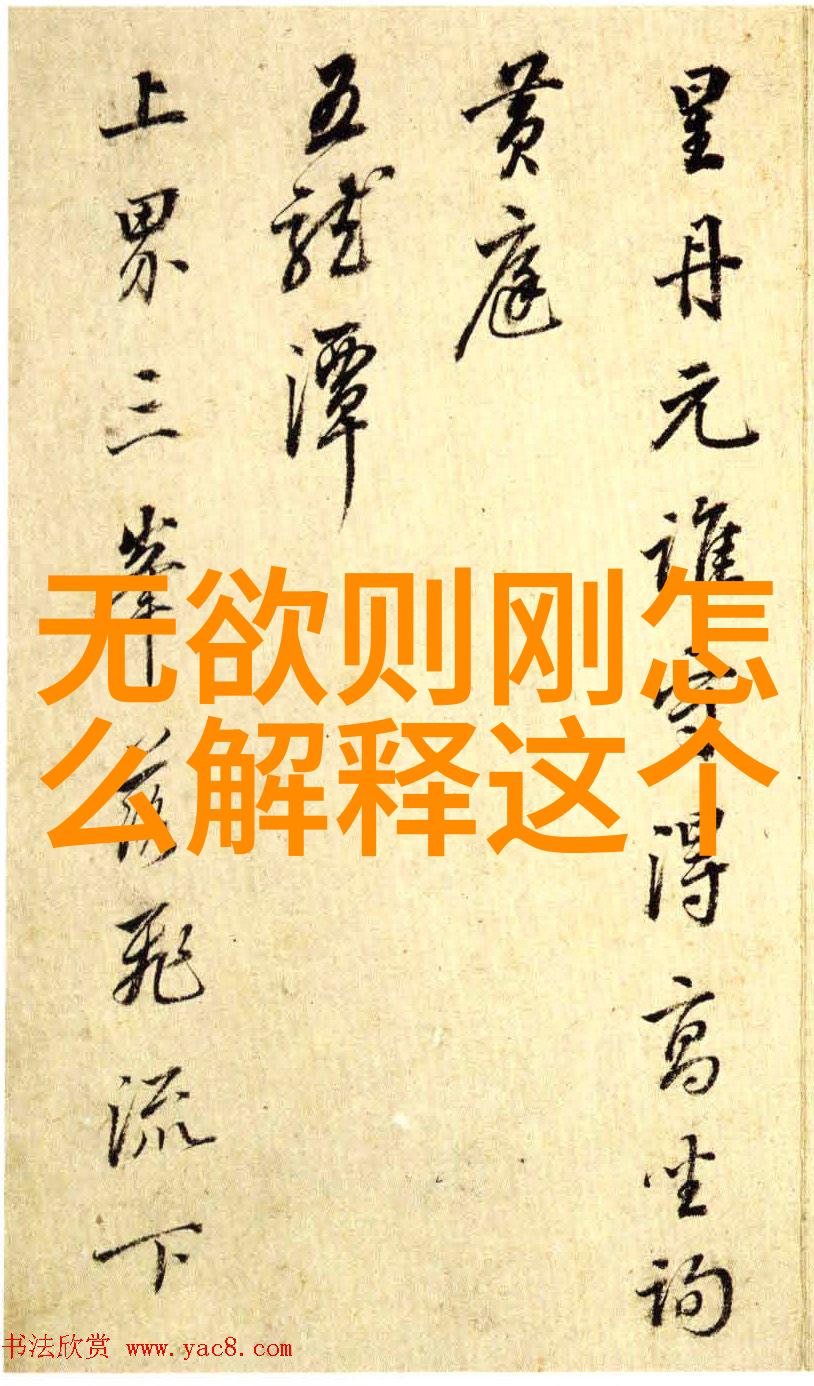 星丹元誰得高坐詢
黄庭
五龍潭
上界三峯飛流下
无欲则刚怎
么解释这个
书法欣赏 www.yac8.com